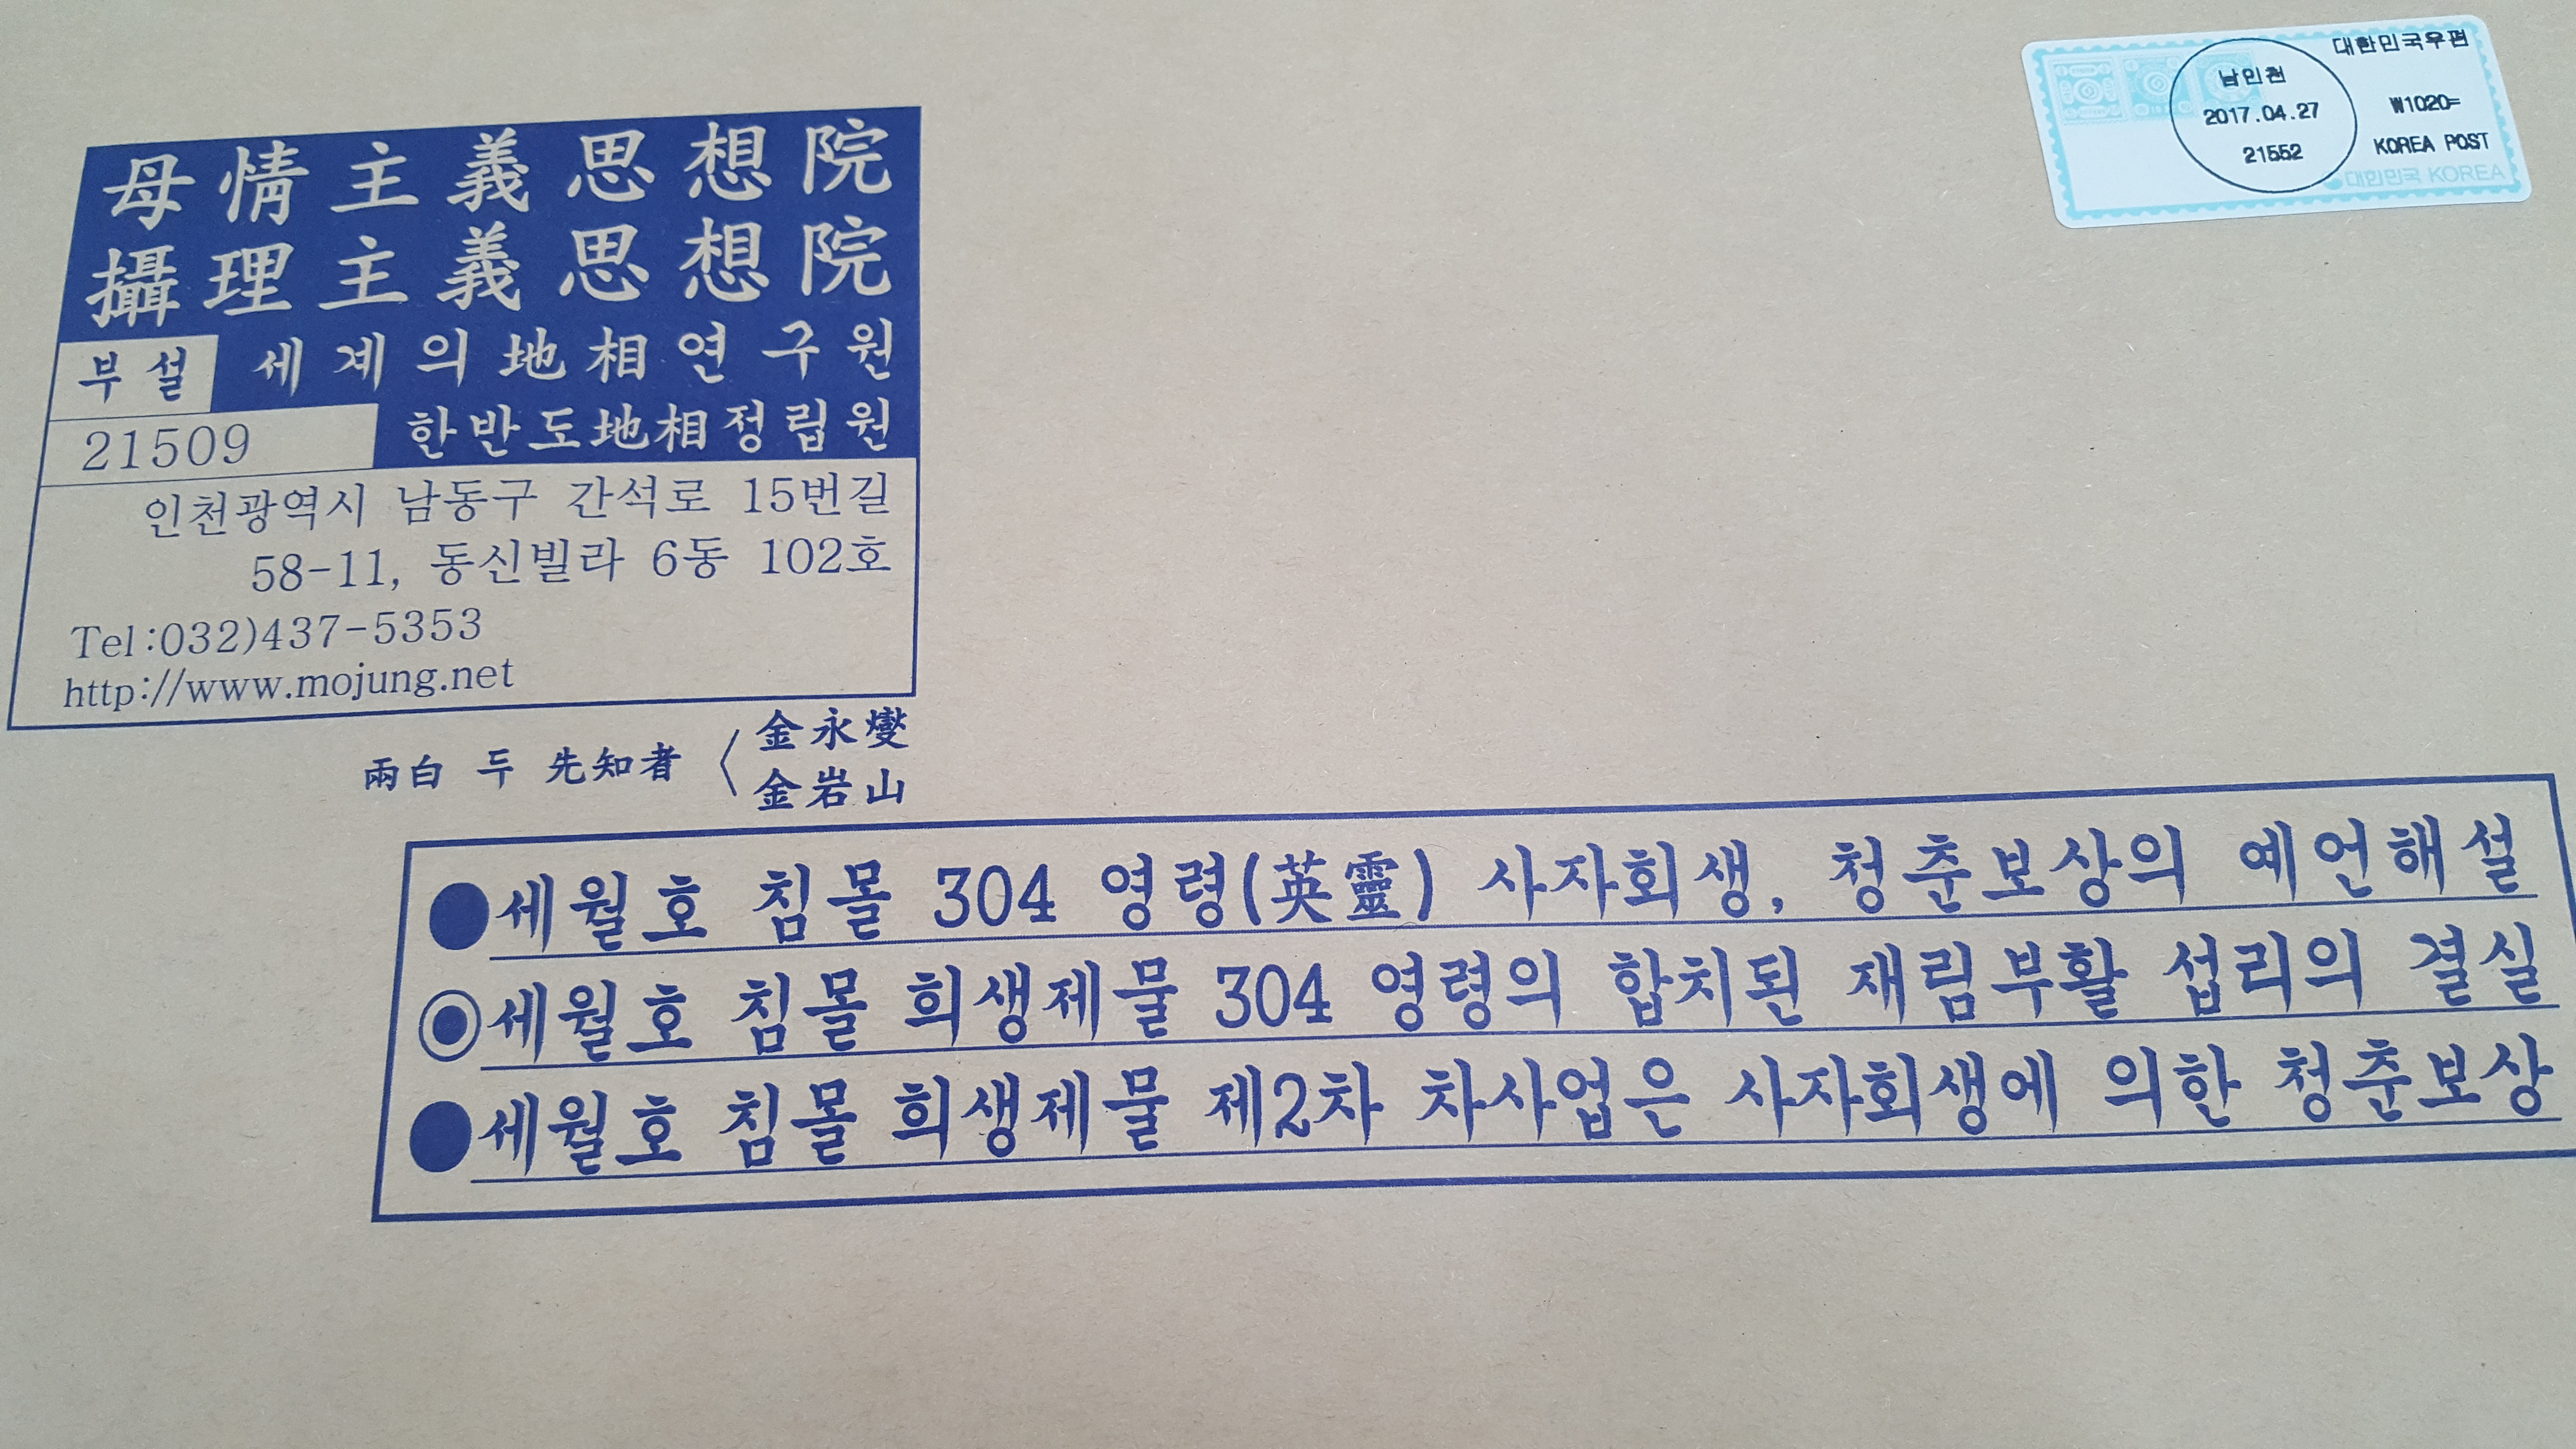 母情主義思想院
攝理主義思想院
부설 세계의 地相연구원
21509 한반도地相정립원
인천광역시 남동구 간석로 15번길
58-11, 동신빌라 6동 102호
Tel:032)437-5353
http://www.mojung.net
兩白 두 先知者 〈 金永燮
金岩山
대한민국우편
남인천
2017.04.27
21552
₩1020=
KOREA POST
대한민국 KOREA
●세월호 침몰 304 영령(英靈) 사자회생, 청춘보상의 예언해설
◉세월호 침몰 희생제물 304 영령의 합치된 재림부활 섭리의 결실
●세월호 침몰 희생제물 제2차 차사업은 사자회생에 의한 청춘보상